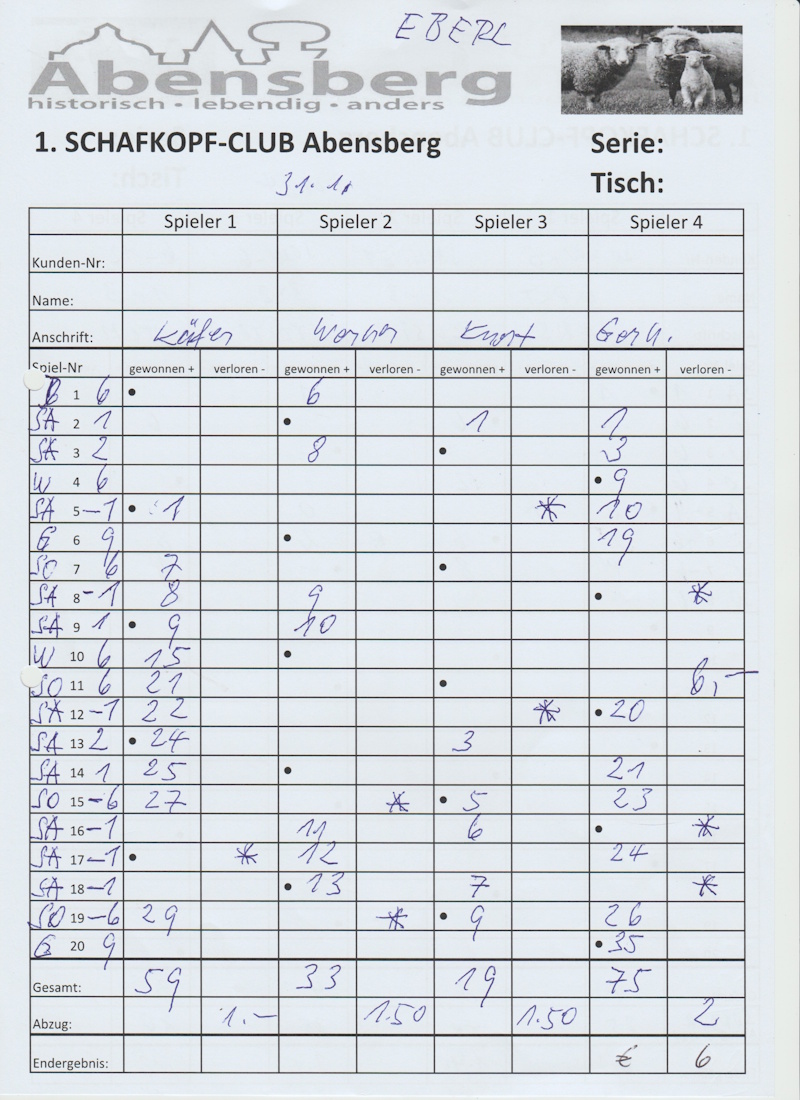 EBERL
Abensberg
historisch • lebendig • anders
1. SCHAFKOPF-CLUB Abensberg Serie:
Tisch:
31.1.
Spieler 1 Spieler 2 Spieler 3 Spieler 4
Kunden-Nr:
Name:
Anschrift: Käfer Werner Knort Gerh.
Spiel-Nr gewonnen + verloren - gewonnen + verloren - gewonnen + verloren - gewonnen + verloren -
1 6 • 6
SA 2 1 • 1 1
SA 3 2 8 • 3
W 4 6 • 9
SA 5 -1 • 1 * 10
G 6 9 • 19
SO 7 6 7 •
SA 8 -1 8 9 • *
SA 9 1 • 9 10
W 10 6 15 •
SO 11 6 21 • 6,-
SA 12 -1 22 * • 20
SA 13 2 • 24 3
SA 14 1 25 • 21
SO 15 -6 27 * • 5 23
SA 16 -1 11 6 • *
SA 17 -1 • * 12 24
SA 18 -1 • 13 7 *
SO 19 -6 29 * • 9 26
G 20 9 • 35
Gesamt: 59 33 19 75
Abzug: 1.- 1.50 1.50 2
Endergebnis: € 6